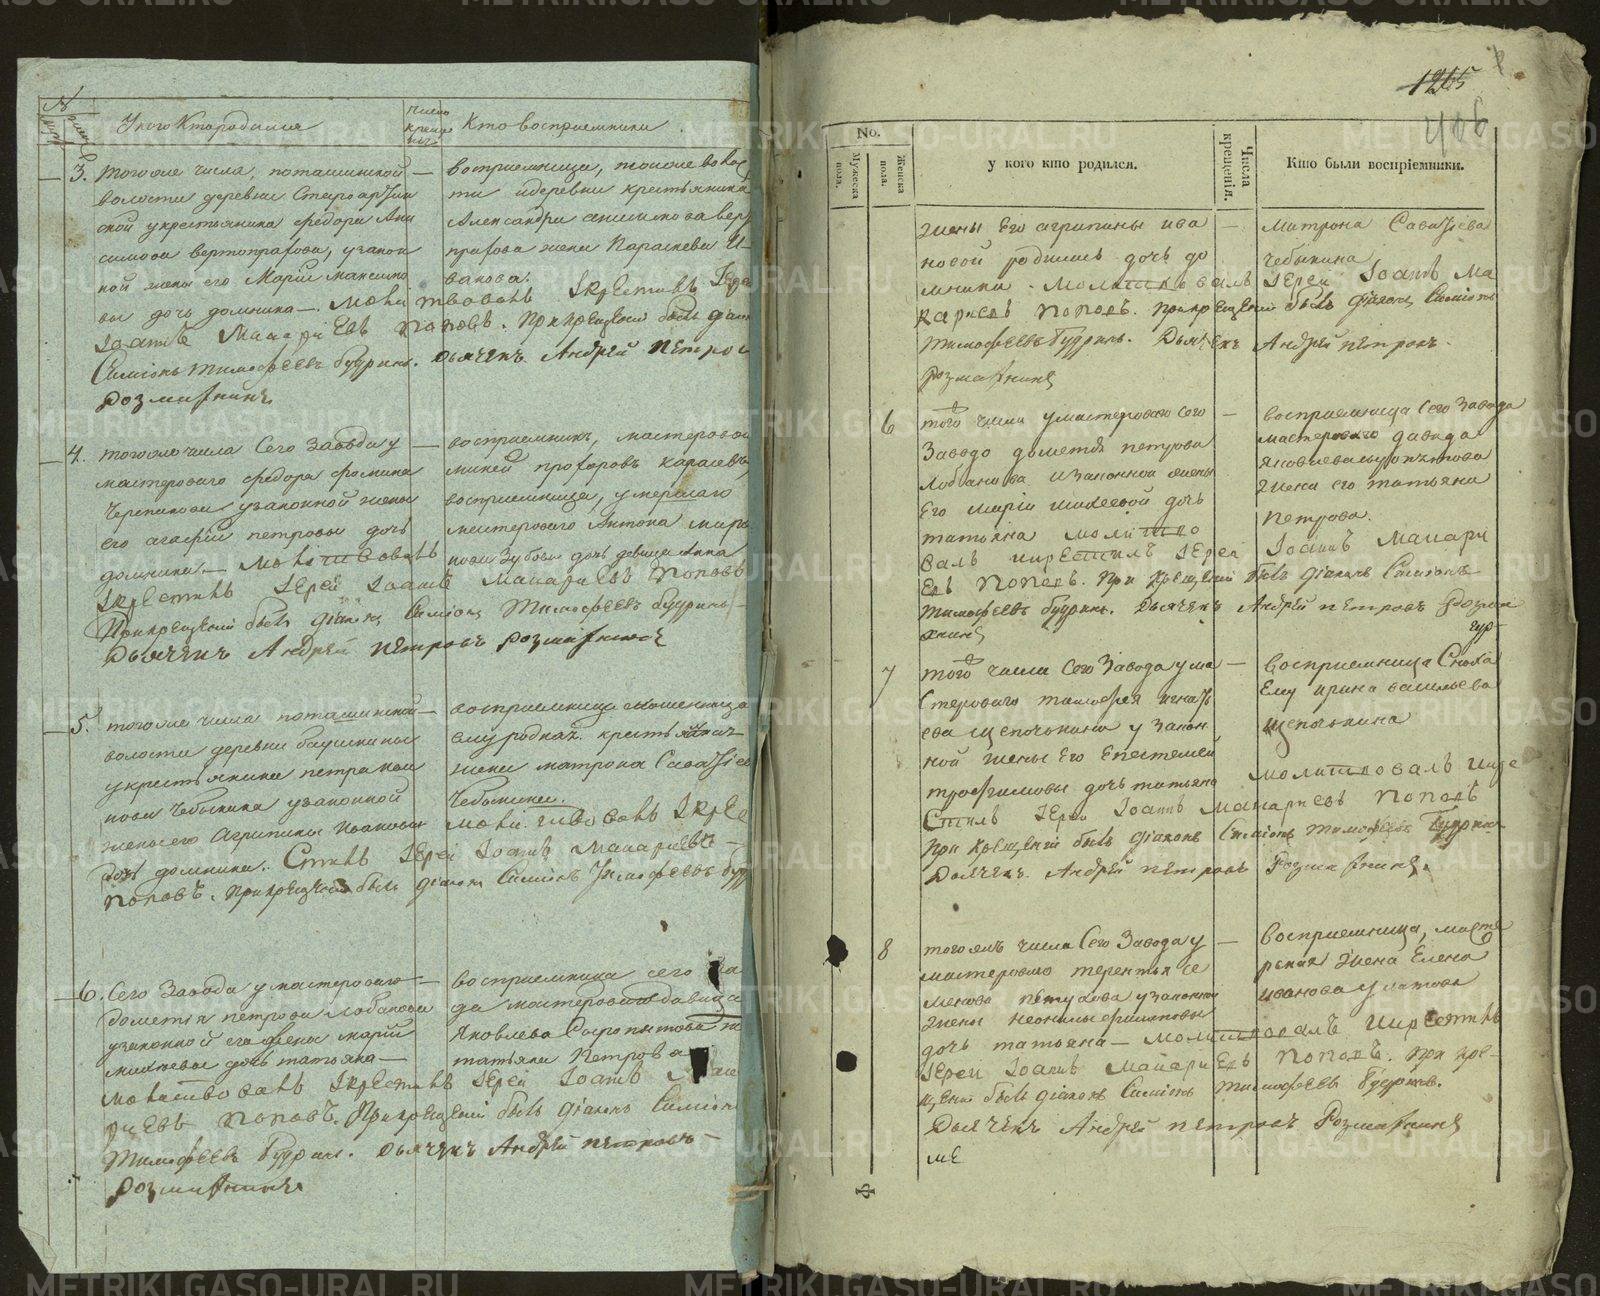 №
У кого Кто родился
Число креще ния
Кто восприемники
3. того же числа, поташинской —
волости деревни Староартин
ской у крестьянина федора Ани
симова вертопрахова, у закон
ной жены его Марии максимо
вы дочь домника — Молитвовалъ Iкрестилъ
Iоаннъ Макарiевъ поповъ. При крещенiи былъ дiаконъ
Симiонъ тимофѣевъ бударинъ. дьячекъ Андрей пѣтровъ
розмахнинъ
восприемница, тойже волос
ти и деревни крестьянина
Александра анисимова верто
прахова жена Параскева И
ванова.
4. того же числа Сего Завода у —
мастероваго федора фомина
Черепанова узаконной жены
его агафiи петровы дочь
домника — Молитвовалъ
Iкрестилъ Iерей Iоаннъ Макарiевъ поповъ
При крещенiи былъ дiаконъ Симiонъ Тимофѣевъ бударинъ —
дьячекъ Андрей пѣтровъ розмахнинъ
восприемникъ, мастеровой
михей прохоровъ карасевъ
восприемница, умершаго
мастероваго Антона миро
нова Зубова дочь девица Анна
5. того же числа поташинской —
волости деревни бакшкины
у крестьянина петра
нова Чебыкина узаконной
жены его Агрипины Ивановы
дочь домника. Стилъ Iерей Iоаннъ Макарiевъ —
поповъ. При крещенiи былъ дiаконъ Симiонъ Тимофѣевъ
восприемница
ему роднах. крестьянск
жена матрона Сава
Чебыкина.
Молитвовалъ Iкре
6. Сего Завода умастероваго —
дометiя петрова лобанова
узаконной его жены марiи
михѣевы дочь татьяна —
Молитвовалъ Iкрестилъ Iерей Iоаннъ Мака
рiевъ поповъ. При крещенiи былъ дiаконъ Симiонъ
Тимофѣевъ бударинъ. дьячекъ Андрей пѣтровъ —
розмахнинъ
восприемница сего за
да мастероваго давида
Яковлева Сыропятова
татьяна Петрова
1265
406
No.
Мужеска пола.
Женска пола.
у кого кто родился.
Числа крещенiя.
Кто были воспрiемники.
жены Его агрипины ива —
новой родилась дочь до
мника. Молитвовалъ Iерей Iоаннъ Ма
карiевъ поповъ. При крещенiи былъ дiаконъ Симiонъ
тимофѣевъ бударинъ. Дьячекъ Андрей пѣтровъ.
розмахнинъ
матрона
Чебыкина
6 того числа умастероваго сего —
Заводо дометiя петрова
Лобанова изаконной жены
Его марiи михѣевой дочь
татьяна молитво
валъ икрестилъ Iерей Iоаннъ макарi
Евъ поповъ. При крещенiи былъ дiаконъ Симiонъ
тимофѣевъ бударинъ. Дьячекъ Андрей пѣтровъ Розма
хнинъ
восприемница Сего Завода
мастероваго давида
яковлева сыропятова
жена его татьяна
Петрова.
7 того числа Сего Завода ума —
Стероваго тимофея игнать
ева щепочкина у закон
ной жены Его Епестемеи
трофимовы дочь татьяна молитвовалъ икре
Стилъ Iерей Iоаннъ Макарiевъ поповъ
при крещенiи былъ дiаконъ Симiонъ тимофѣевъ бударин
Дьячекъ. Андрей пѣтровъ Розмахнинъ.
восприемница Сноха
Ему ирина васильева
щепочкина
8 тогожъ числа Сего Завода у —
мастероваго терентья се
менова петухова узаконной
жены неонилы филиповы
дочь татьяна — молитвовалъ икрестилъ
Iерей Iоаннъ Макарiевъ поповъ. при кре-
щенiи былъ дiаконъ Симiонъ тимофѣевъ бударинъ.
Дьячекъ Андрей пѣтровъ Розмахнинъ
восприемница, масте
рская жена Елена
иванова
Ф
METRIKI.GASO-URAL.RU